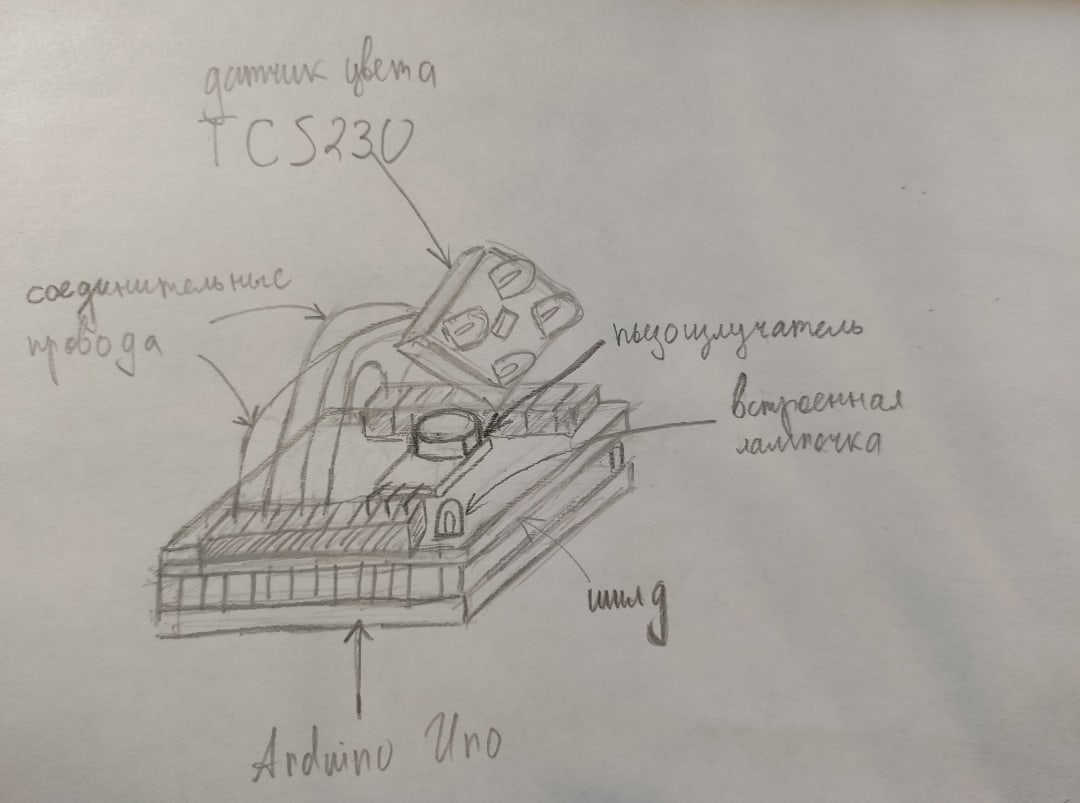 датчик цвета
TCS230
соединительные
провода
пьезоизлучатель
встроенная
лампочка
шилд
Arduino Uno